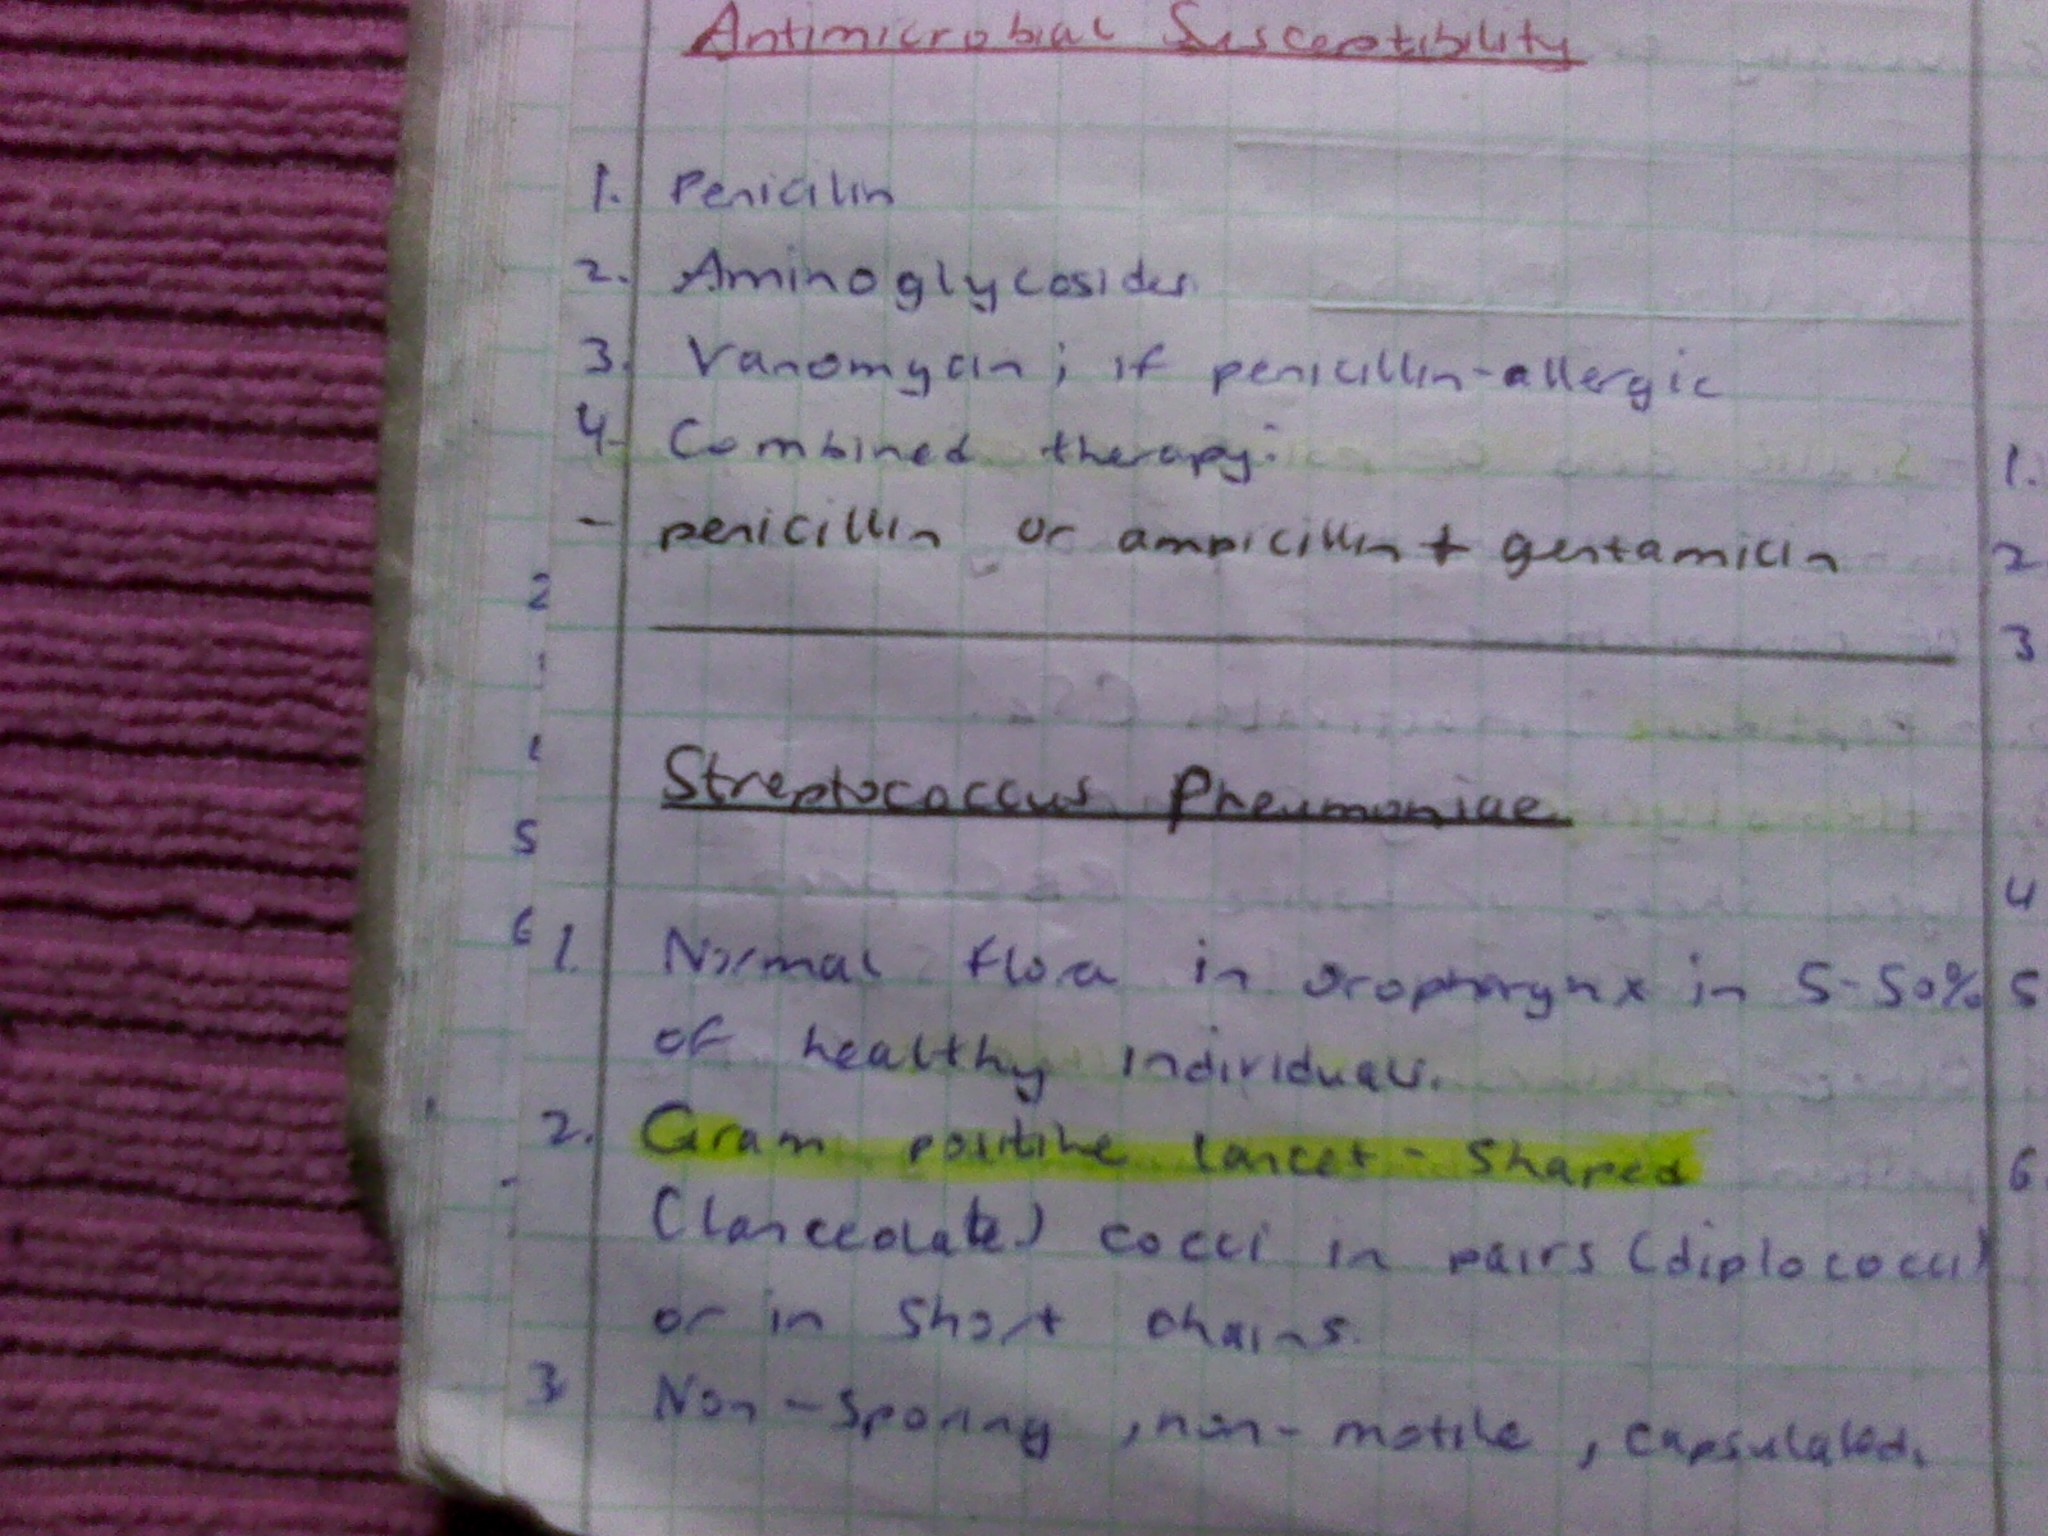 Antimicrobial Susceptibility
1. Penicilin
2. Aminoglycosides
3. Vanomycin ; if penicillin-allergic
4- Combined therapy:
- penicillin or ampicillin + gentamicin
Streptococcus Pneumoniae
1. Normal flora in oropharynx in 5-50%
of healthy individuals.
2. Gram positive lancet - shaped
(lanceolate) cocci in pairs (diplococci)
or in short chains.
3 Non-sporing , non-motile , capsulated.
2
5
6
1.
2
3
4
5
6